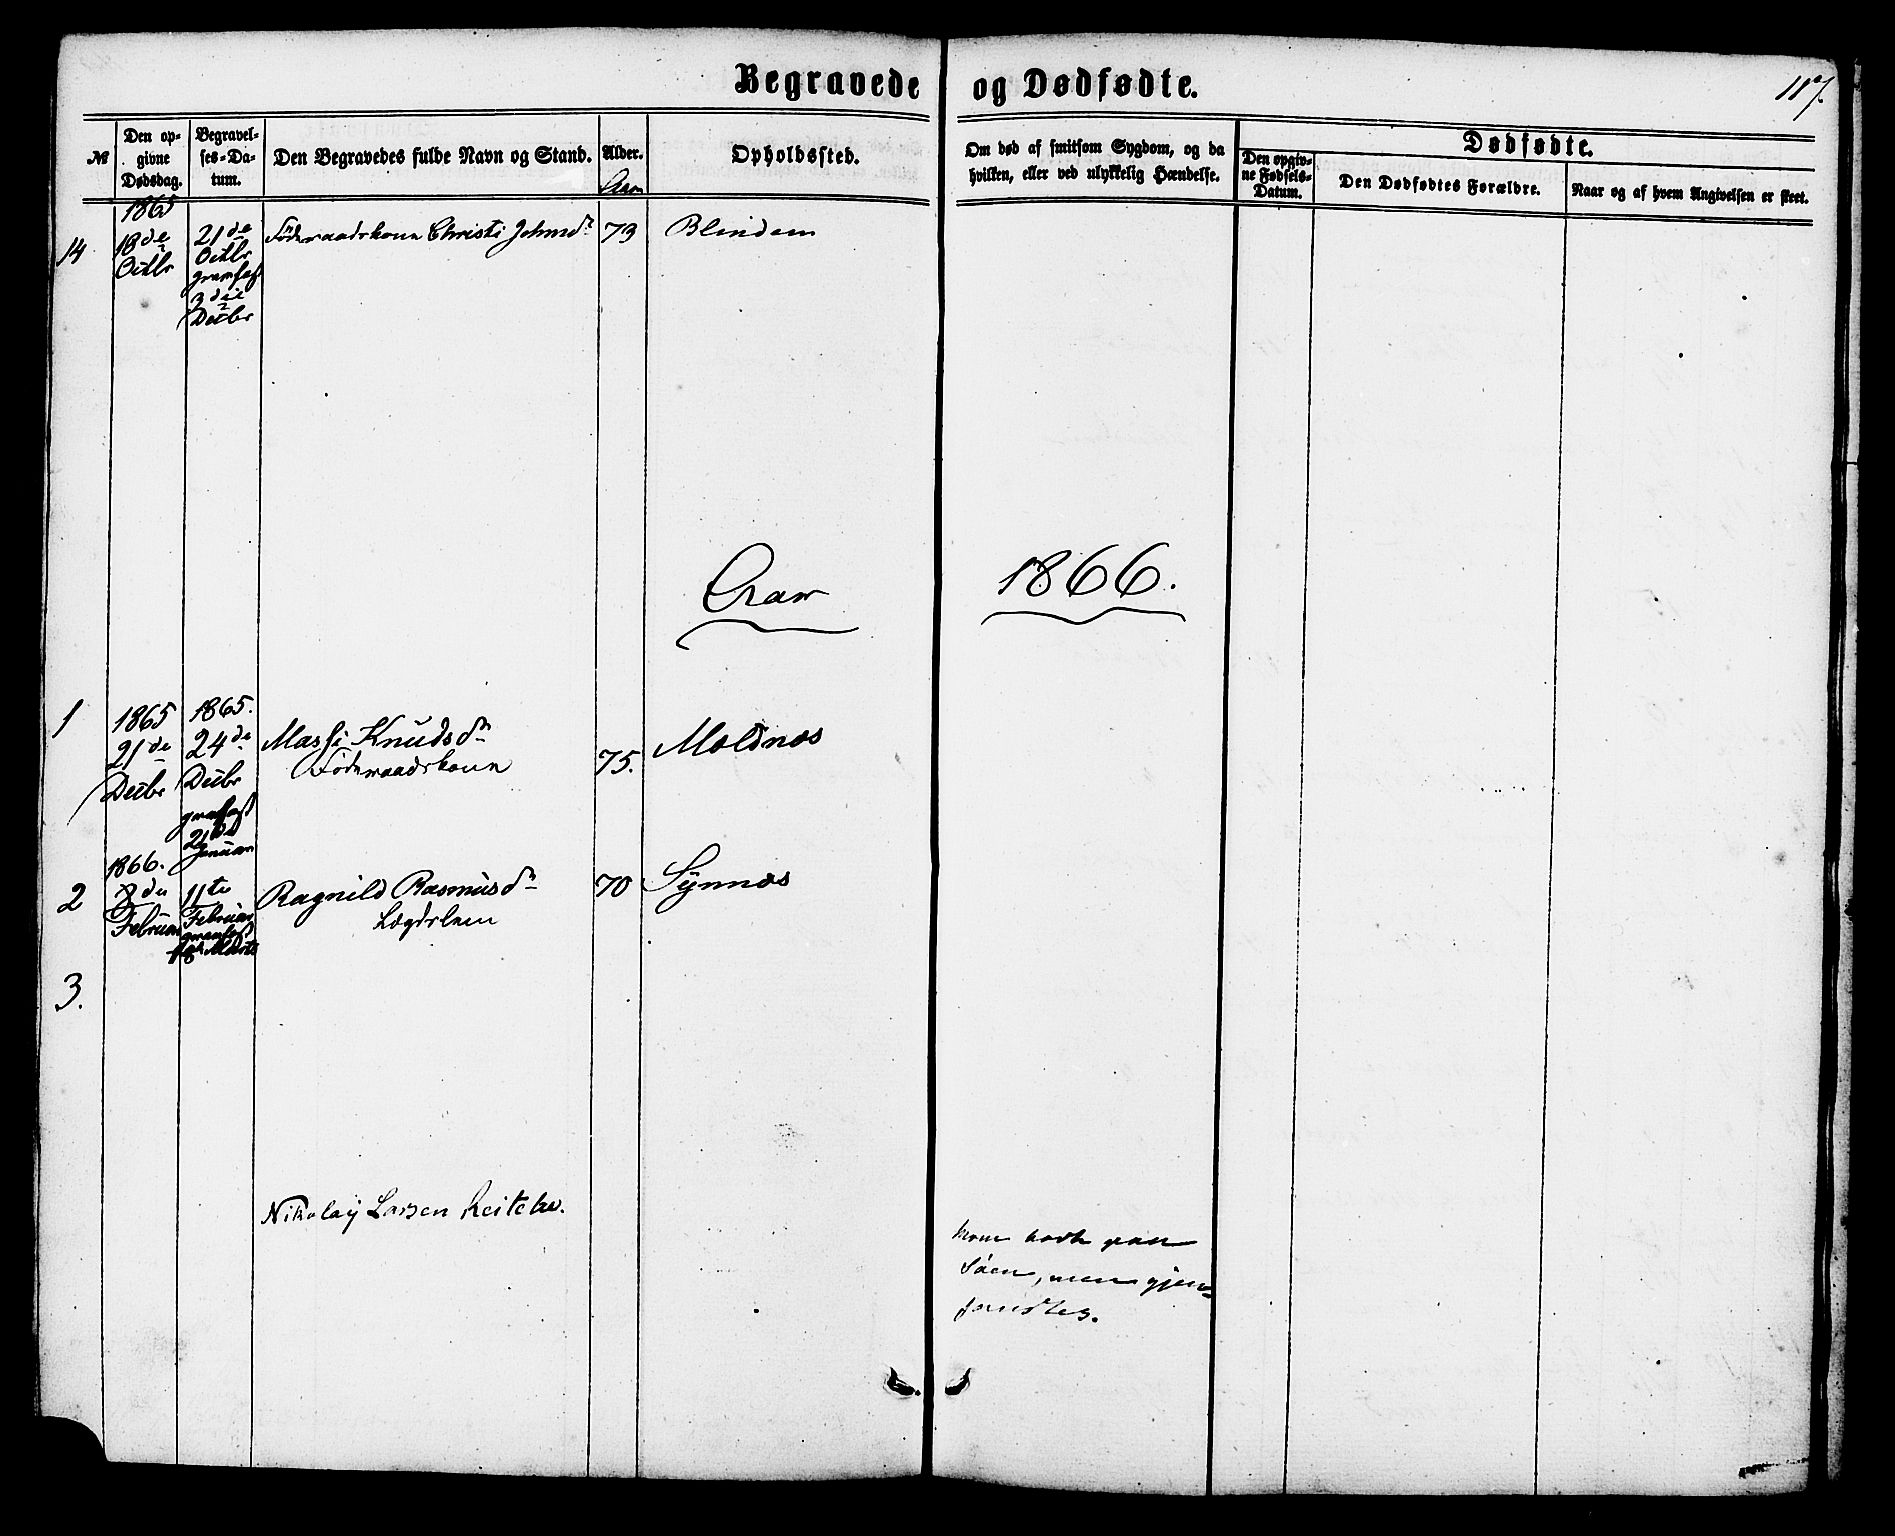 Begravede og Dødfødte.
117.
№
Den op-
givne
Dødsdag.
Begravel-
ses-Da-
tum.
Den Begravedes fulde Navn og Stand.
Alder.
Aar
Opholdssted.
Om død af smitsom Sygdom, og da
hvilken, eller ved ulykkelig Hændelse.
Dødfødte.
Den opgiv-
ne Fødsels-
Datum.
Den Dødfødtes Forældre.
Naar og af hvem Angivelsen er skeet.
1865
14
18de
Octbr
21de
Octbr
3die
Decbr
Föderaadskone Christi Johnsdr
73
Blindem
Aar 1866.
1
1865
21de
Decbr
1865.
24de
Decbr
21de
Januar
Massi Knudsdr
Föderaadskone
75.
Moldnæs
1866.
2
8de
Februar
11te
Februar
Marts
Ragnild Rasmusdr
Lægdslem
70
Synnæs
3.
Nikolay Larsen Reitehr.
kom bort paa
Søen, men gjen-
fandtes.